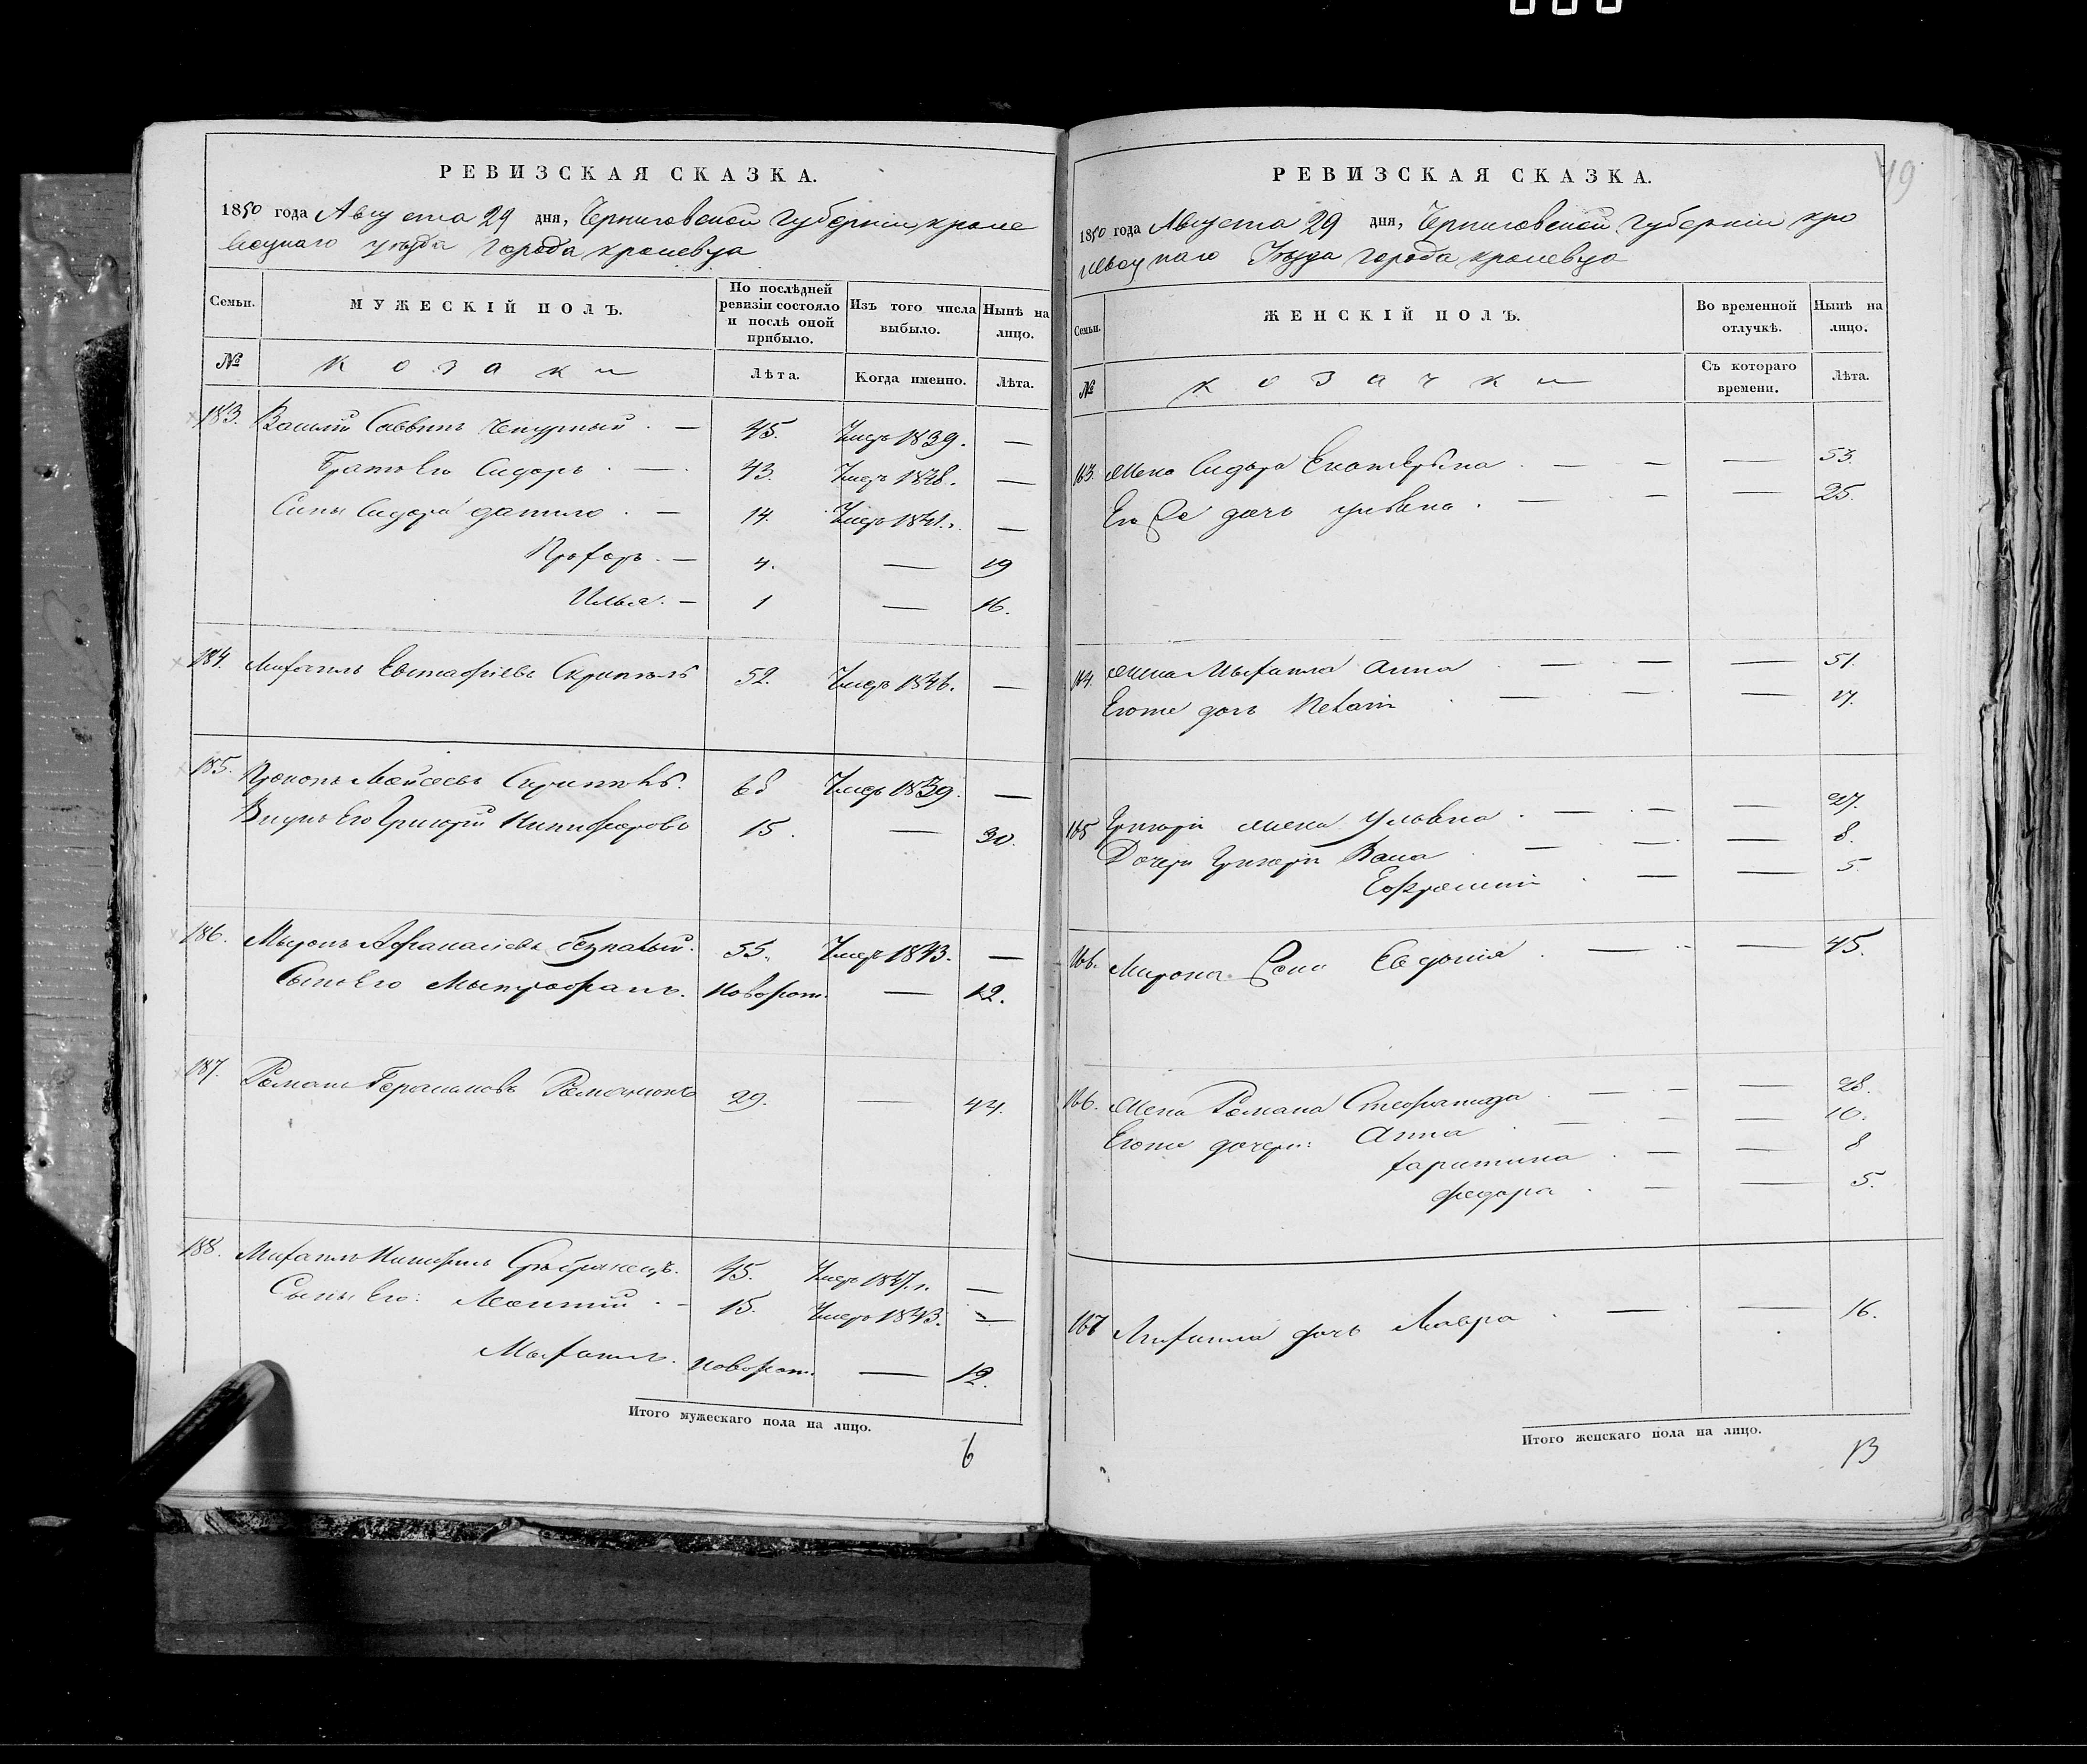 49
РЕВИЗСКАЯ СКАЗКА.
1850 года Августа 29 дня, Черниговской Губерніи, кроле
вецкаго уезда города кролевца
Семьи. МУЖЕСКІЙ ПОЛЪ. По послѣдней ревизіи состояло и послѣ оной прибыло. Изъ того числа выбыло. Нынѣ на лицо.
№ козаки Лѣта. Когда именно. Лѣта.
183. Василій Саввинъ Чепурный. — 45. Умеръ 1839. —
Братъ Его Сидоръ. — 43. Умеръ 1848. —
Сыны Сидора данило. — 14. Умеръ 1841. —
Прохоръ. — 4. — 19
Илья. — 1 — 16.
184. Михаилъ Евстафіевъ 52. Умеръ 1846. —
185. Прокопъ Моисеевъ 68 Умеръ 1839. —
Внукъ Его Григорій Никифоровъ 15. — 30.
186. Миронъ Афанасіевъ 55. Умеръ 1843. —
Сынъ Его Мытрофанъ. Новорож. — 12.
187. Романъ Герасимовъ 29. — 44.
188. Михаилъ 45. Умеръ 1847. —
Сыны Его: Леонтій. — 15. Умеръ 1843. —
Мыхаилъ. новорож. — 12.
Итого мужескаго пола на лицо.
6
РЕВИЗСКАЯ СКАЗКА.
1850 года Августа 29 дня, Черниговской Губерніи кро
левецкаго Уезда города кролевца
Семьи. ЖЕНСКІЙ ПОЛЪ. Во временной отлучкѣ. Нынѣ на лицо.
№ козачки Съ котораго времени. Лѣта.
183. Жена Сидора Екатерина. — — — 53.
Его же дочь ульяна. — — — 25.
184. жена Мыхаила Анна. — — — 51.
Егоже дочь — — — 17.
185 Григорія жена Ульяна. — — — 27.
Дочери Григорія — — — 8.
Ефросинія. — — 5.
166. Мирона Жена Евдокія. — — 45.
166. Жена Романа — — — 28.
Егоже дочери: Анна. — — — 10.
харитина. — — 8
федора. — — 5.
167 Михаила дочь Мавра. — — 16.
Итого женскаго пола на лицо.
13